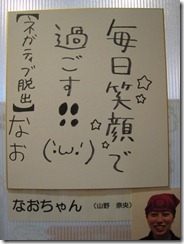 毎日笑顔で
過ごす!!
(´ω`)
【ネガティブ脱出】なお
なおちゃん
(山野 奈央)